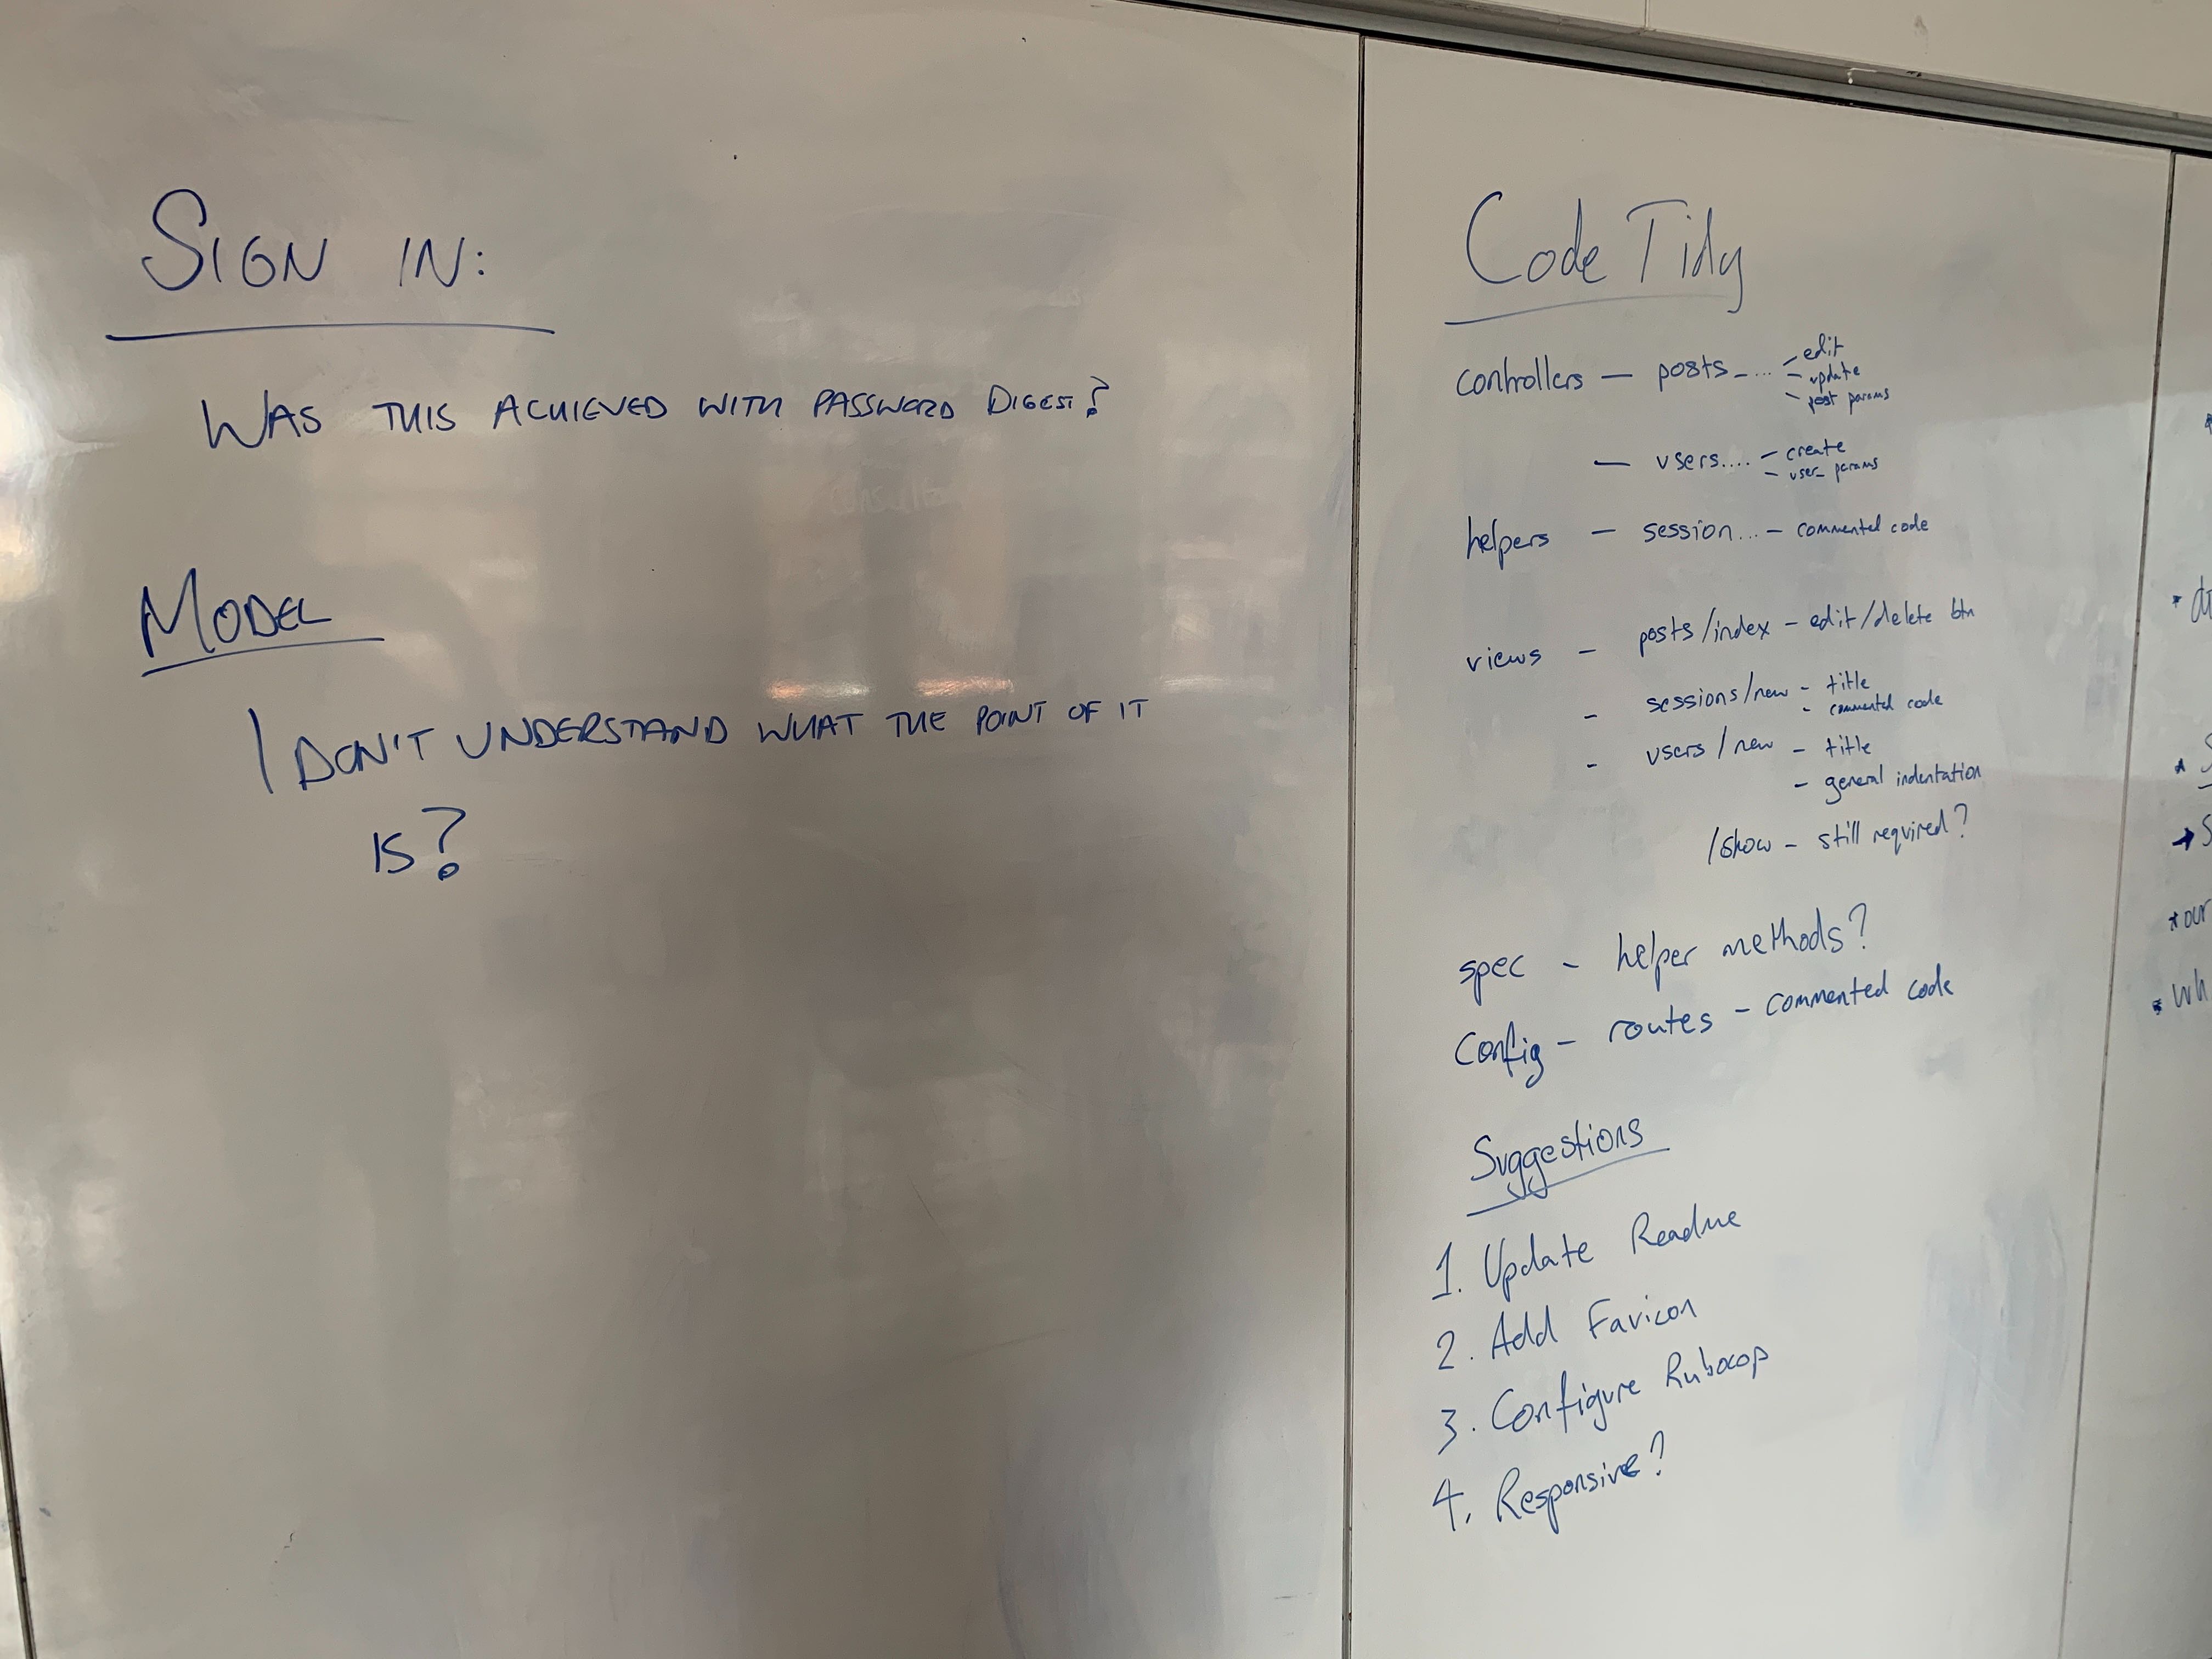 SIGN IN:
WAS THIS ACHIEVED WITH PASSWORD DIGEST?
MODEL
I DON'T UNDERSTAND WHAT THE POINT OF IT
IS?
Code Tidy
controllers — posts - ... - edit
- update
- post params
— users.... - create
- user_params
helpers — session... - commented code
views - posts/index - edit/delete btn
- sessions/new - title
- commented code
- users/new - title
- general indentation
/show - still required?
spec - helper methods?
Config - routes - commented code
Suggestions
1. Update Readme
2. Add Favicon
3. Configure Rubocop
4. Responsive?
* our